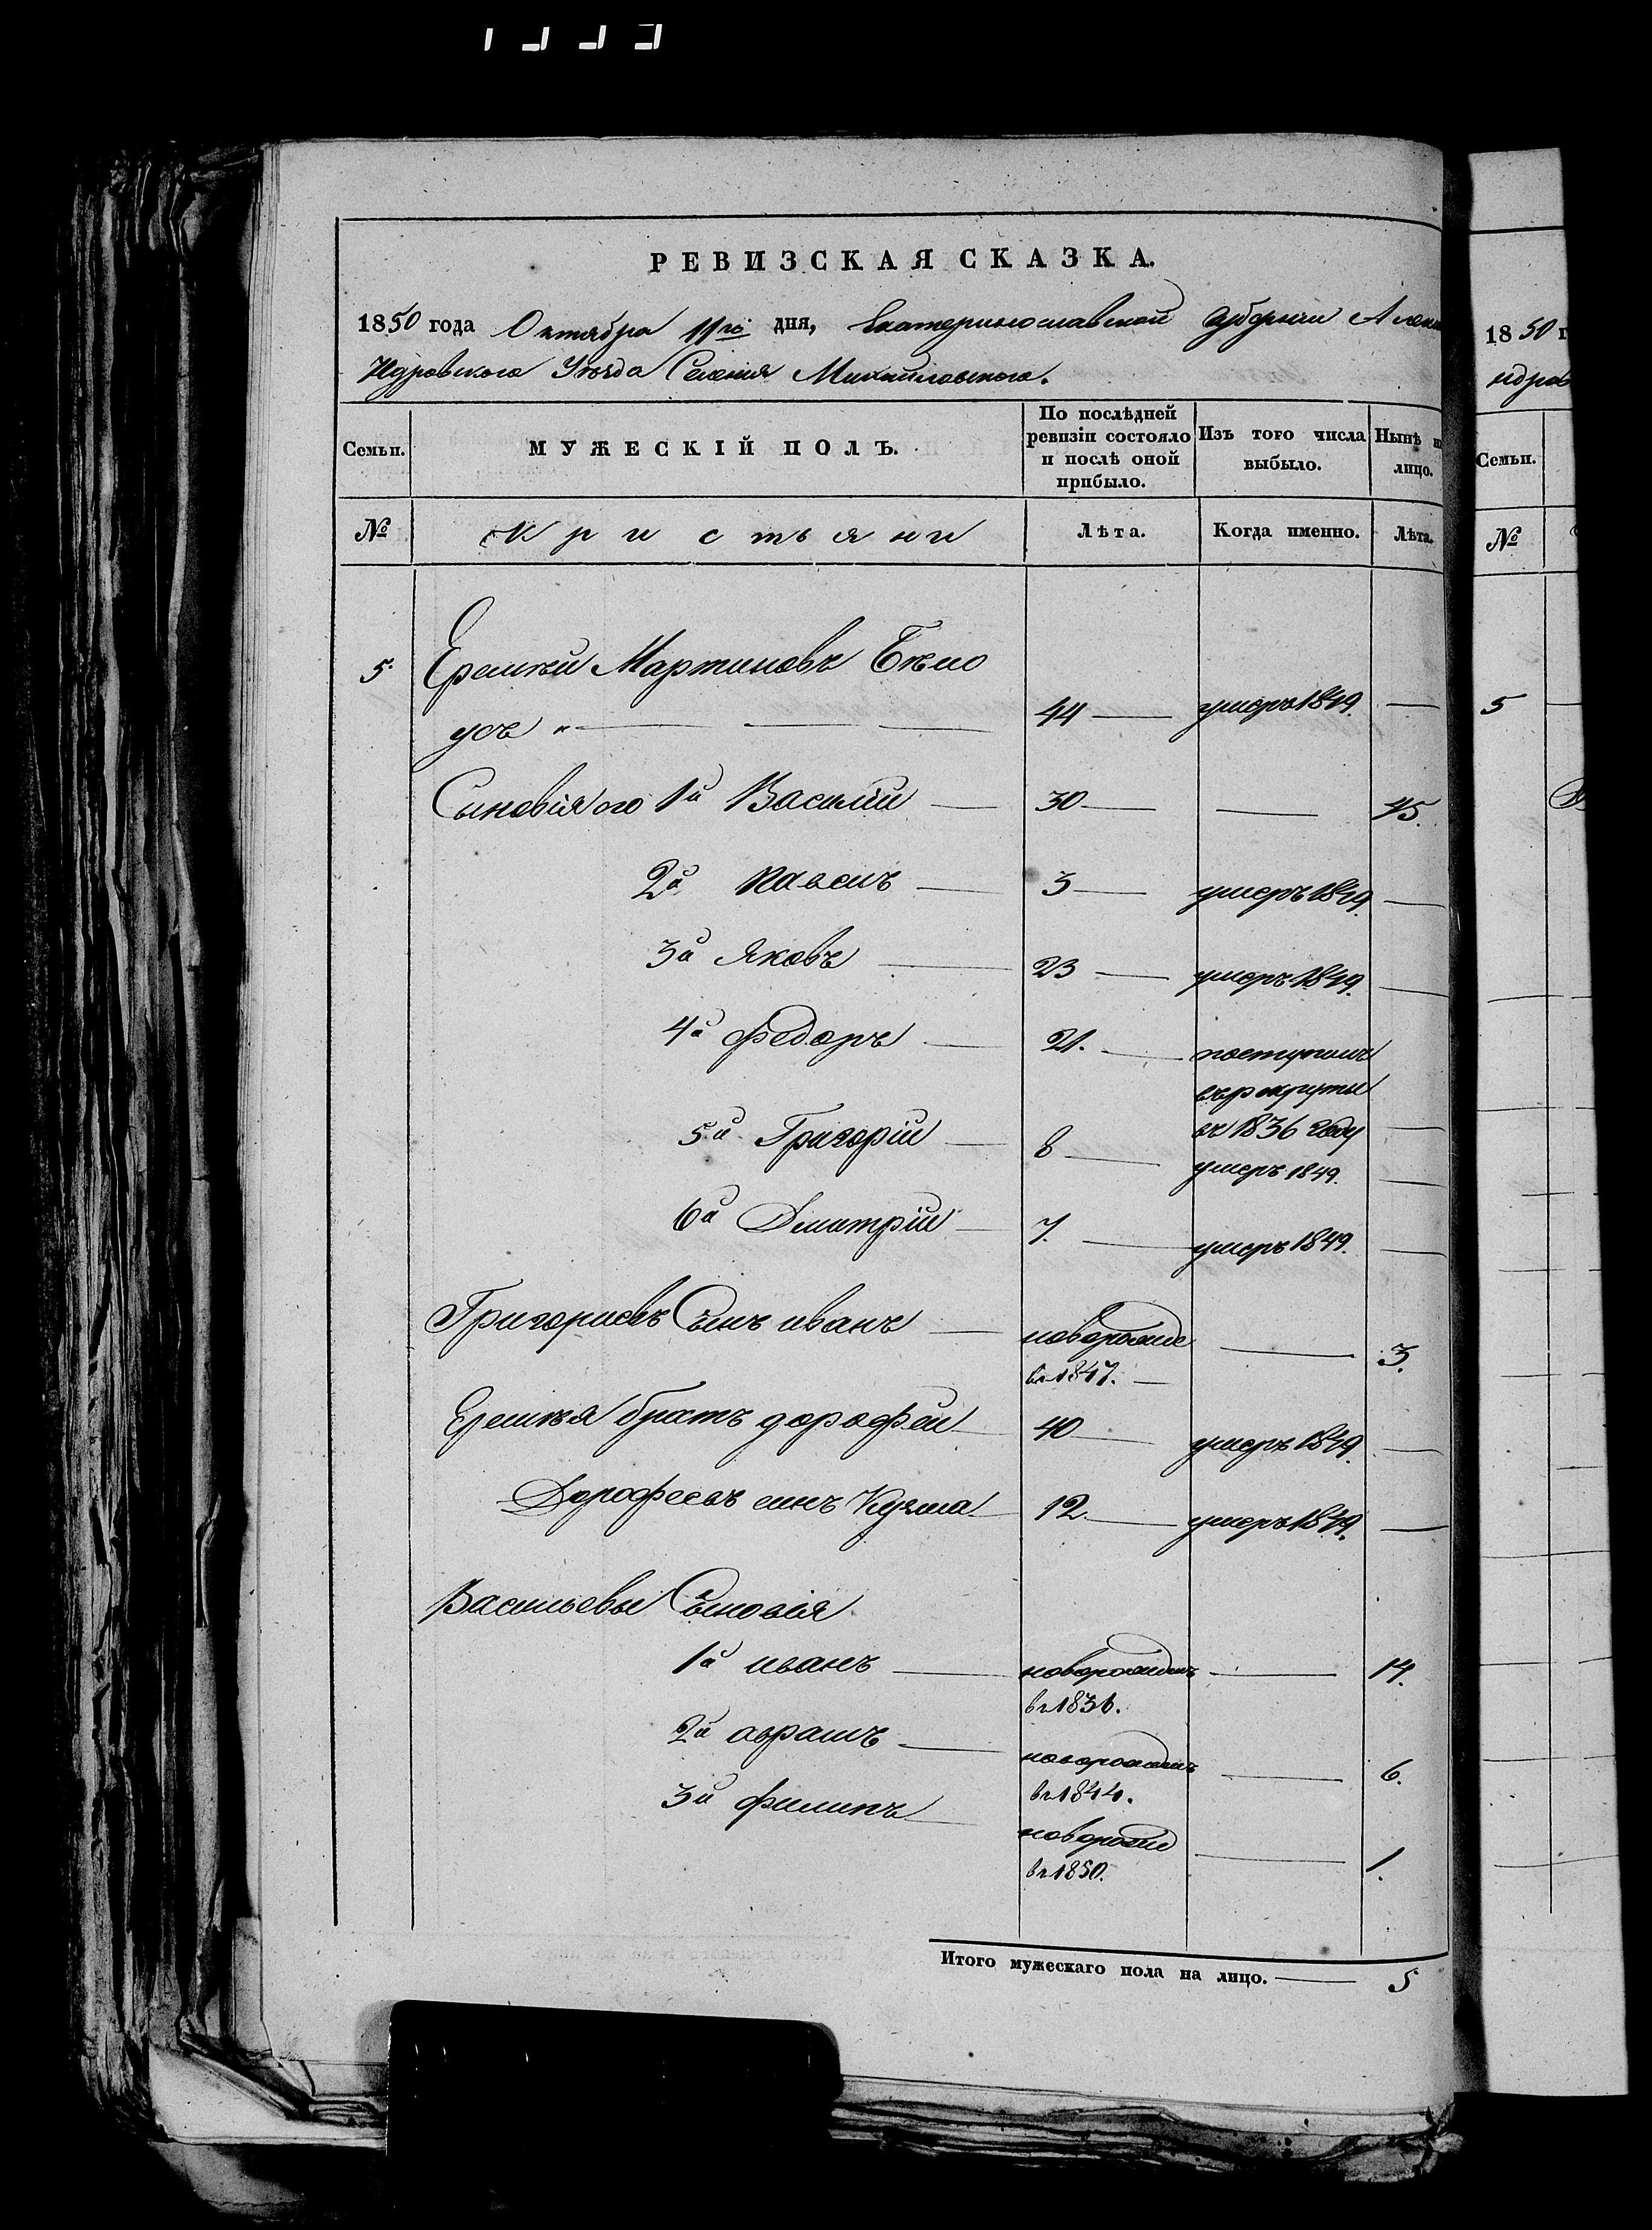 РЕВИЗСКАЯ СКАЗКА.
1850 года Октября 11го дня, Екатеринославской Губернии Алекса
Ндровского Уезда Селения Михайловского.
Семьи.
МУЖЕСКІЙ ПОЛЪ.
По послѣдней ревизіи состояло и послѣ оной прибыло.
Изъ того числа выбыло.
Нынѣ н лицо.
№
Кристьяни
Лѣта.
Когда именно.
Лѣта.
5. Еремѣй Мартиновъ Бело
усъ 44 умеръ 1849.
Сыновія его 1й Василій 30 45.
2й Павелъ 3 умеръ 1849.
3й Яковъ 23 умеръ 1849.
4й Федоръ 21. поступилъ
въ рекруты
въ 1836 году
5й Григорій 8 умеръ 1849.
6й Дмитрій 7. умеръ 1849.
Григориевъ Сынъ иванъ новорожде 3.
въ 1847.
Еремѣя братъ дорофей 40 умеръ 1849.
Дорофеевъ синъ Кузма 12 умеръ 1849.
Васильевы Сыновія
1й иванъ новорожденъ 14.
въ 1836.
2й аврамъ новорожденъ 6.
въ 1844.
3й филипъ новорожде 1.
въ 1850.
Итого мужескаго пола на лицо. 5
1850 г
ндров
Семьи.
№
5